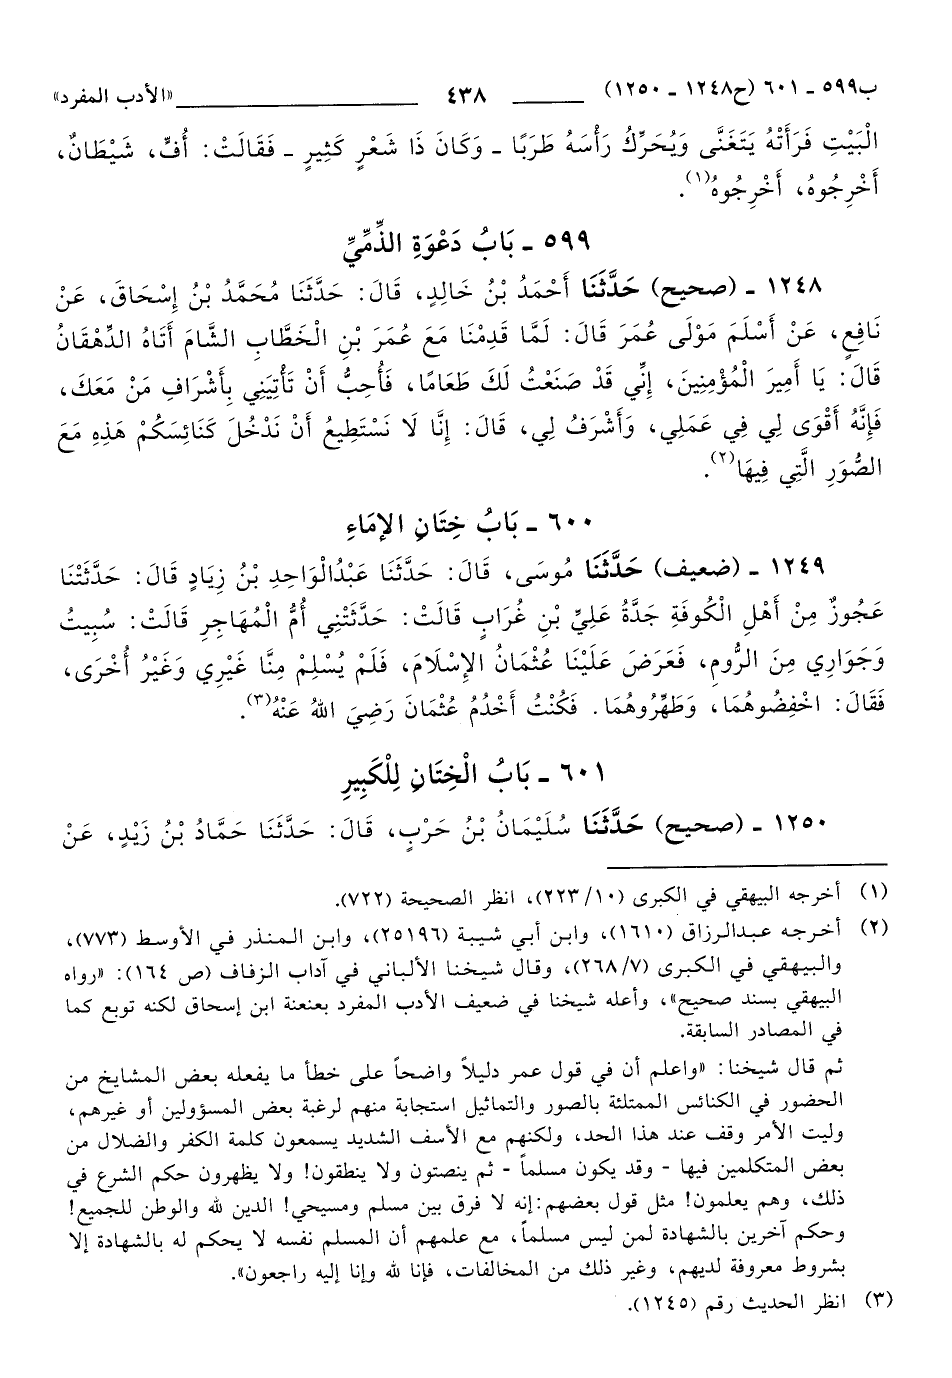 ب٥٩٩ ـ ٦٠١ (ح١٢٤٨ ـ ١٢٥٠) ٤٣٨ «الأدب المفرد»
الْبَيْتِ فَرَأَتْهُ يَتَغَنَّى وَيُحَرِّكُ رَأْسَهُ طَرَبًا ـ وَكَانَ ذَا شَعْرٍ كَثِيرٍ ـ فَقَالَتْ: أُفٍّ، شَيْطَانٌ،
أَخْرِجُوهُ، أَخْرِجُوهُ(١).
٥٩٩ ـ بَابُ دَعْوَةِ الذِّمِّيِّ
١٢٤٨ ـ (صحيح) حَدَّثَنَا أَحْمَدُ بْنُ خَالِدٍ، قَالَ: حَدَّثَنَا مُحَمَّدُ بْنُ إِسْحَاقَ، عَنْ
نَافِعٍ، عَنْ أَسْلَمَ مَوْلَى عُمَرَ قَالَ: لَمَّا قَدِمْنَا مَعَ عُمَرَ بْنِ الْخَطَّابِ الشَّامَ أَتَاهُ الدِّهْقَانُ
قَالَ: يَا أَمِيرَ الْمُؤْمِنِينَ، إِنِّي قَدْ صَنَعْتُ لَكَ طَعَامًا، فَأُحِبُّ أَنْ تَأْتِيَنِي بِأَشْرَافِ مَنْ مَعَكَ،
فَإِنَّهُ أَقْوَى لِي فِي عَمَلِي، وَأَشْرَفُ لِي، قَالَ: إِنَّا لَا نَسْتَطِيعُ أَنْ نَدْخُلَ كَنَائِسَكُمْ هَذِهِ مَعَ
الصُّوَرِ الَّتِي فِيهَا(٢).
٦٠٠ ـ بَابُ خِتَانِ الإمَاءِ
١٢٤٩ ـ (ضعيف) حَدَّثَنَا مُوسَى، قَالَ: حَدَّثَنَا عَبْدُالْوَاحِدِ بْنُ زِيَادٍ قَالَ: حَدَّثَتْنَا
عَجُوزٌ مِنْ أَهْلِ الْكُوفَةِ جَدَّةُ عَلِيِّ بْنِ غُرَابٍ قَالَتْ: حَدَّثَتْنِي أُمُّ الْمُهَاجِرِ قَالَتْ: سُبِيتُ
وَجَوَارِي مِنَ الرُّومِ، فَعَرَضَ عَلَيْنَا عُثْمَانُ الإِسْلَامَ، فَلَمْ يُسْلِمْ مِنَّا غَيْرِي وَغَيْرُ أُخْرَى،
فَقَالَ: اخْفِضُوهُمَا، وَطَهِّرُوهُمَا. فَكُنْتُ أَخْدُمُ عُثْمَانَ رَضِيَ اللهُ عَنْهُ(٣).
٦٠١ ـ بَابُ الْخِتَانِ لِلْكَبِيرِ
١٢٥٠ ـ (صحيح) حَدَّثَنَا سُلَيْمَانُ بْنُ حَرْبٍ، قَالَ: حَدَّثَنَا حَمَّادُ بْنُ زَيْدٍ، عَنْ
(١) أخرجه البيهقي في الكبرى (٢٢٣/١٠)، انظر الصحيحة (٧٢٢).
(٢) أخرجه عبدالرزاق (١٦١٠)، وابن أبي شيبة (٢٥١٩٦)، وابن المنذر في الأوسط (٧٧٣)،
والبيهقي في الكبرى (٢٦٨/٧)، وقال شيخنا الألباني في آداب الزفاف (ص ١٦٤): «رواه
البيهقي بسند صحيح»، وأعله شيخنا في ضعيف الأدب المفرد بعنعنة ابن إسحاق لكنه توبع كما
في المصادر السابقة.
ثم قال شيخنا: «واعلم أن في قول عمر دليلاً واضحاً على خطأ ما يفعله بعض المشايخ من
الحضور في الكنائس الممتلئة بالصور والتماثيل استجابة منهم لرغبة بعض المسؤولين أو غيرهم،
وليت الأمر وقف عند هذا الحد، ولكنهم مع الأسف الشديد يسمعون كلمة الكفر والضلال من
بعض المتكلمين فيها - وقد يكون مسلماً - ثم ينصتون ولا ينطقون! ولا يظهرون حكم الشرع في
ذلك، وهم يعلمون! مثل قول بعضهم:إنه لا فرق بين مسلم ومسيحي! الدين لله والوطن للجميع!
وحكم آخرين بالشهادة لمن ليس مسلماً، مع علمهم أن المسلم نفسه لا يحكم له بالشهادة إلا
بشروط معروفة لديهم، وغير ذلك من المخالفات، فإنا لله وإنا إليه راجعون».
(٣) انظر الحديث رقم (١٢٤٥).